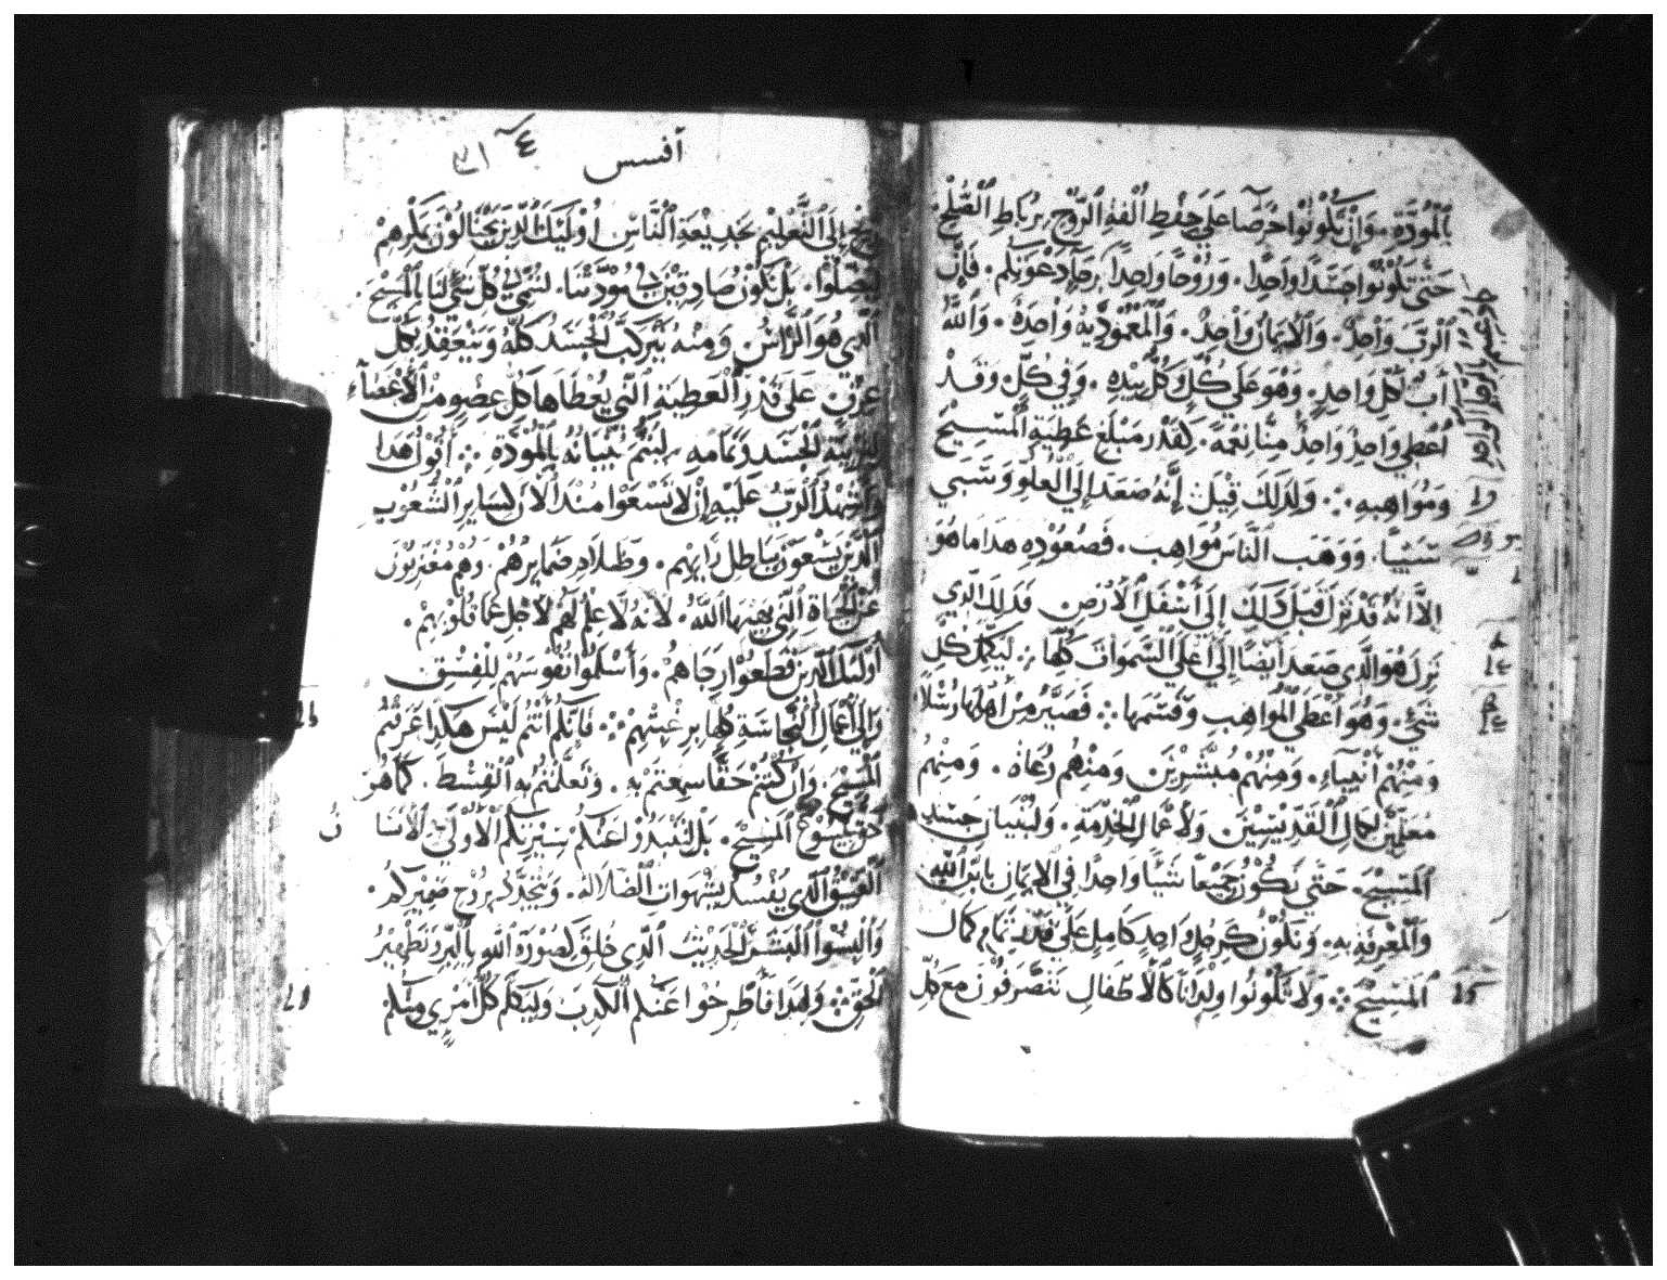 بالمودة. وان تكونوا حرصا على حفظ الفة الروح برباط الصلح.
حتى تكونوا جسدا واحدا. وروحا واحدا دعوتكم. فان
الرب واحد. والايمان واحد. والمعموديه واحدة. والله
اب لكل واحد. وهو على كل وكل بيده. وفي كل وقد
اعطي واحد واحد منا نعمة. كقدر مبلغ عطية المسيح
ومواهبه ∴ ولذلك قيل انه صعد إلى العلو وسبي
سبيا. ووهب الناس مواهب. فصعوده هذا ما هو
الا انه قد نزل قبل ذلك إلى أسفل الارض فذلك الذي
نزل هو الذي صعد ايضا إلى أعلى السموات كلها ∴ ليكمل كل
شيء. وهو اعطى المواهب وقسمها ∴ فصير من اهلها رسلا
ومنهم أنبياء. ومنهم مبشرين ومنهم رعاة. ومنهم
معلمين لكمال القديسين. ولأعمال الخدمة. ولبنيان جسد
المسيح. حتى نكون جميعا شيا واحدا في الايمان بابن الله
والمعرفة به. ونكون كرجل واحد كامل على قدر تمام كمال
المسيح ∴ ولا تكونوا ولدانا كالأطفال تنصرفون مع كل
افسس ٤
ريح إلى التعليم بخديعة الناس اوليك الذين يحتالون بمكرهم
ليضلوا. بل نكون صادقين في مودتنا. لننمي كل شي لنا بالمسيح.
الذي هو الراس. ومنه يتركب الجسد كله وينعقد بكل
عرق على قدر العطية التي يعطاها كل عضو من الأعضاء
لتربية الجسد وتمامه ليتم بنيانه بالمودة ∴ اقول هذا
واشهد الرب عليه ان لا تسعوا منذ الآن كساير الشعوب
الذين يسعون بباطل رايهم. وظلاد ضمايرهم. وهم مغتربون
عن الحياة التي يهبها الله. لانه لا علم لهم لأجل عما قلوبهم.
اوليك الذين قطعوا رجاهم. وأسلموا نفوسهم للفسق
والى أعمال النجاسة كلها برغبتهم ∴ فانكم أنتم ليس هكذا عرفتم
المسيح. وان كنتم حقا سمعتم به. وتعلمتم به القسط. كما هو
حق بيسوع المسيح. بل لتنبذوا عنكم سيرتكم الأولى الانسا
العتيق الذي يفسد بشهوات الضلالة. وتتجدد بروح ضميركم.
والبسوا البشر الحديث الذي خلق لصورة الله بالبر وتطهير
الحق ∴ ولهذا فاطرحوا عنكم الكذب وليكلم كل أمرئ منكم
ن